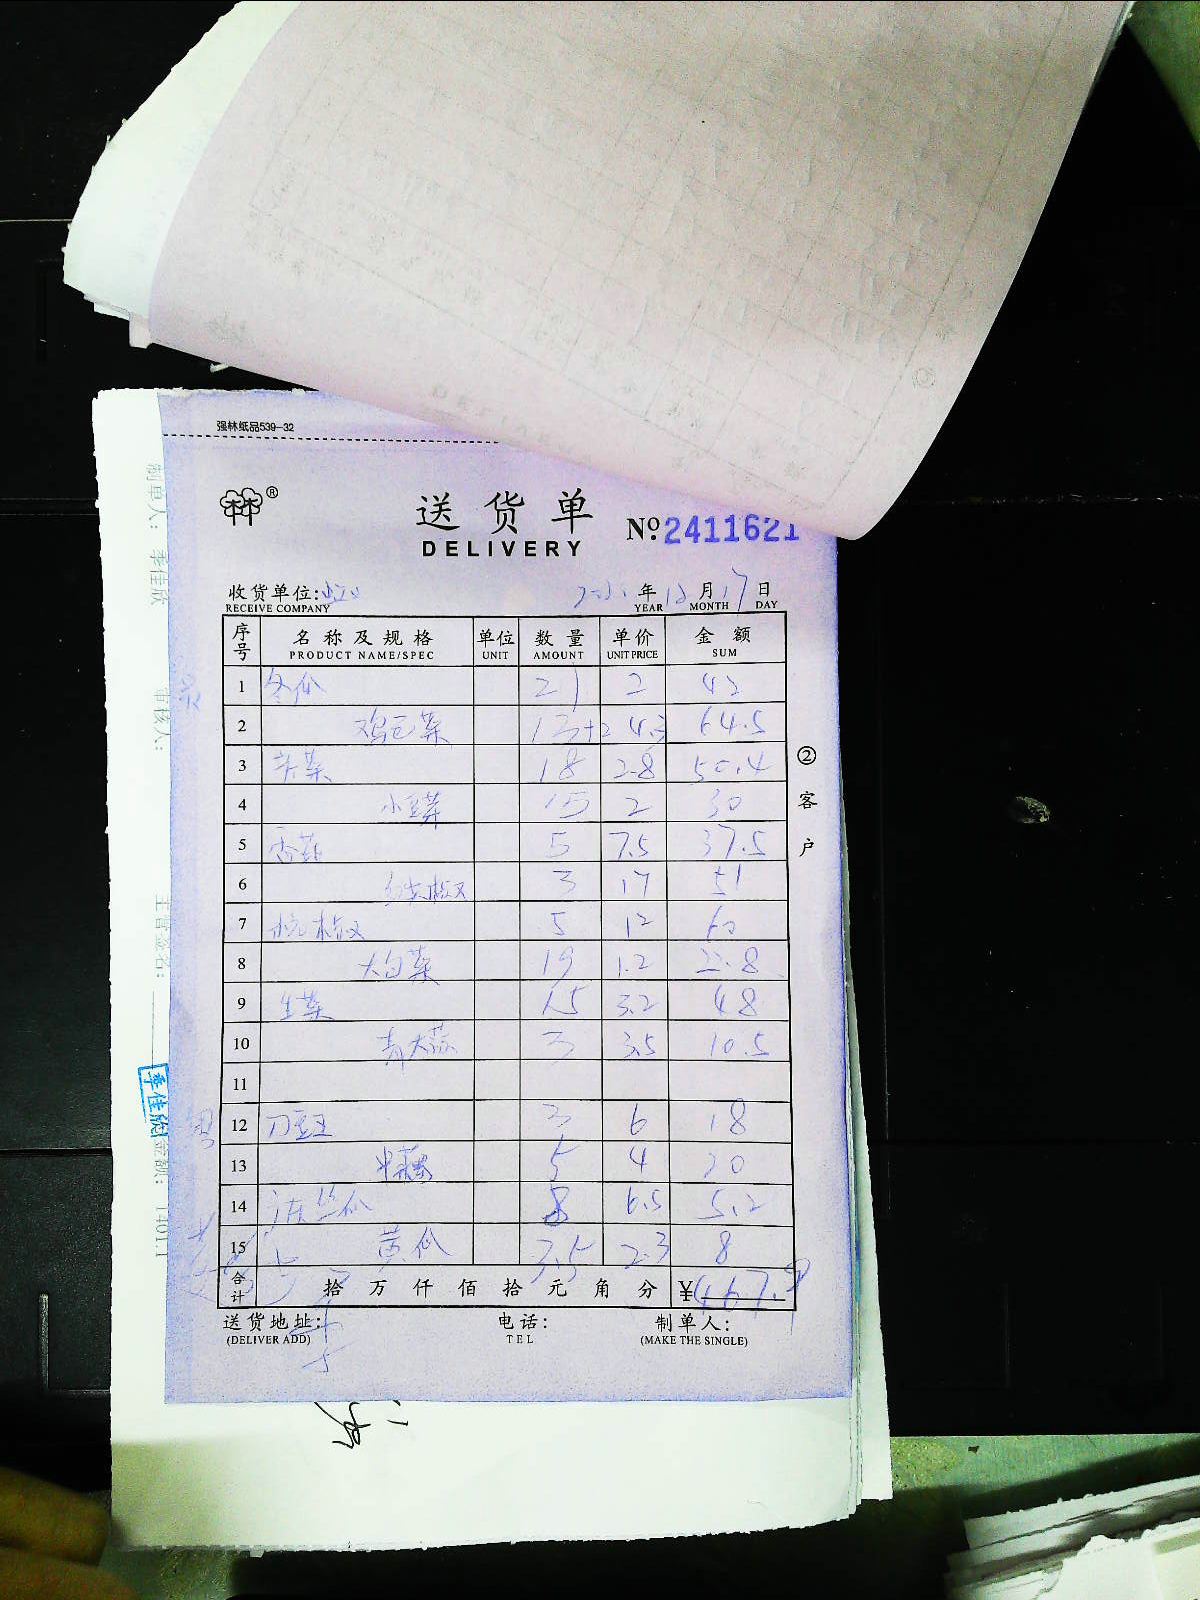 强林纸品539-32
送货单
DELIVERY
№ 2411621
收货单位:
RECEIVE COMPANY
年 12 月 17 日
YEAR MONTH DAY
序号 名称及规格 单位 数量 单价 金额
PRODUCT NAME/SPEC UNIT AMOUNT UNIT PRICE SUM
1 冬瓜 21 2 42
2 鸡毛菜 13+2 4.3 64.5
3 18 2.8 50.4
4 15 2 30
5 香菇 5 7.5 37.5
6 3 17 51
7 杭椒 5 12 60
8 大白菜 19 1.2 22.8
9 生菜 15 3.2 48
10 青大蒜 3 3.5 10.5
11
12 刀豆 3 6 18
13 5 4 20
14 丝瓜 8 6.5 5.2
15 黄瓜 3.5 2.3 8
合计 拾 万 仟 佰 拾 元 角 分 ¥467.9
送货地址: 电话: 制单人:
(DELIVER ADD) TEL (MAKE THE SINGLE)
②客户
制单人: 季佳欣
审核人:
主管签名:
季佳欣
金额: 1401.1